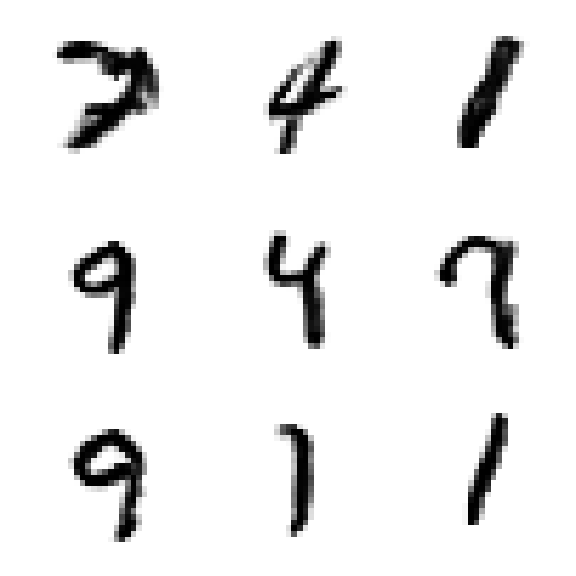 7 4 1
9 4 7
9 1 1